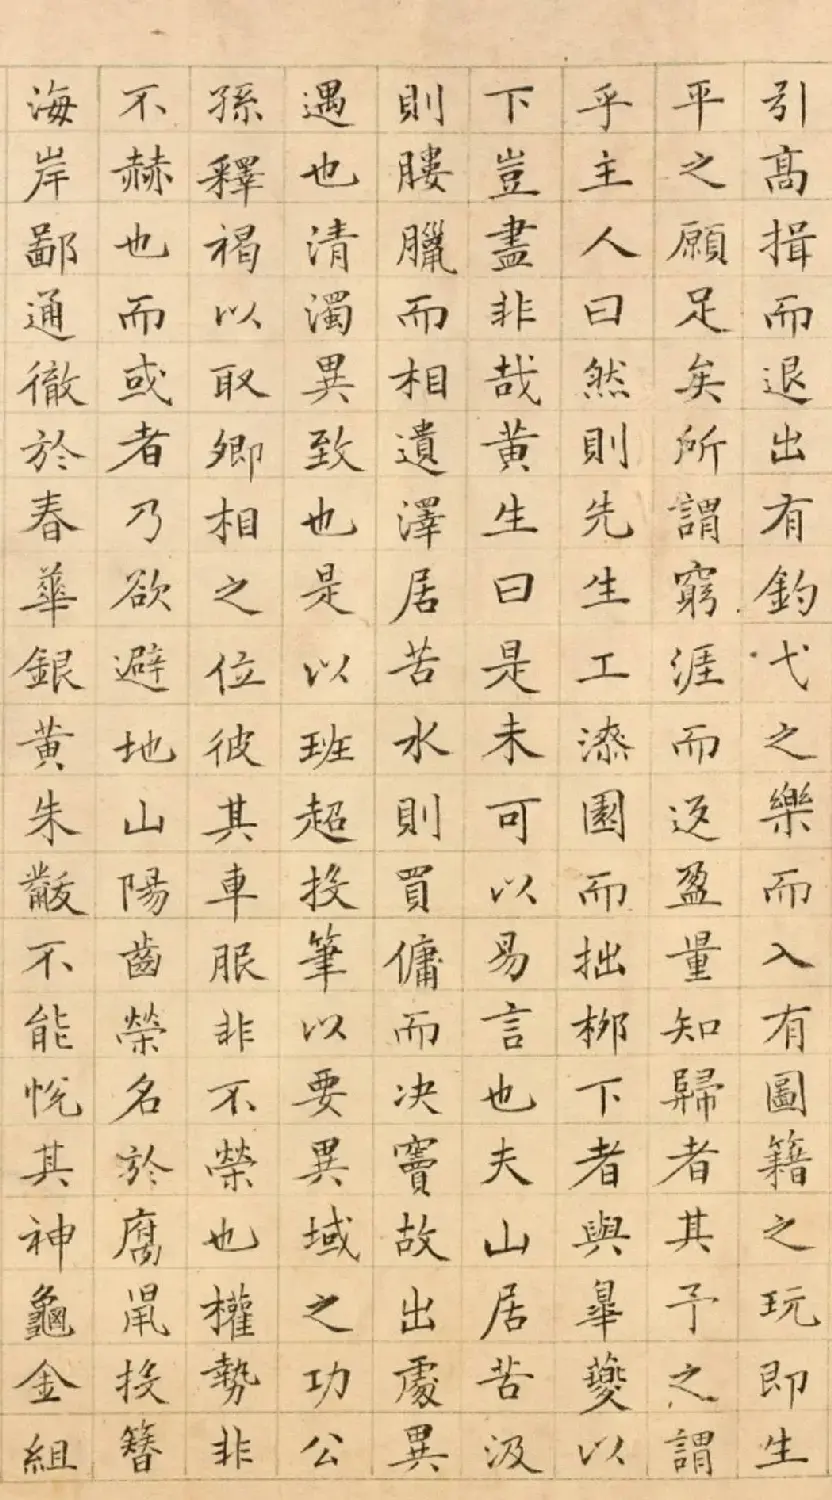 引高揖而退出有釣弋之樂而入有圖籍之玩即生
平之願足矣所謂窮涯而返盈量知歸者其予之謂
乎主人曰然則先生工漆園而拙栁下者與皐夔以
下豈盡非哉黄生曰是未可以易言也夫山居苦汲
則膢臘而相遺澤居苦水則買傭而决竇故出處異
遇也清濁異致也是以班超投筆以要異域之功公
孫釋褐以取卿相之位彼其車服非不榮也權勢非
不赫也而或者乃欲避地山陽齒榮名於腐鼠投簪
海岸鄙通徹於春華銀黄朱黻不能悅其神龜金組